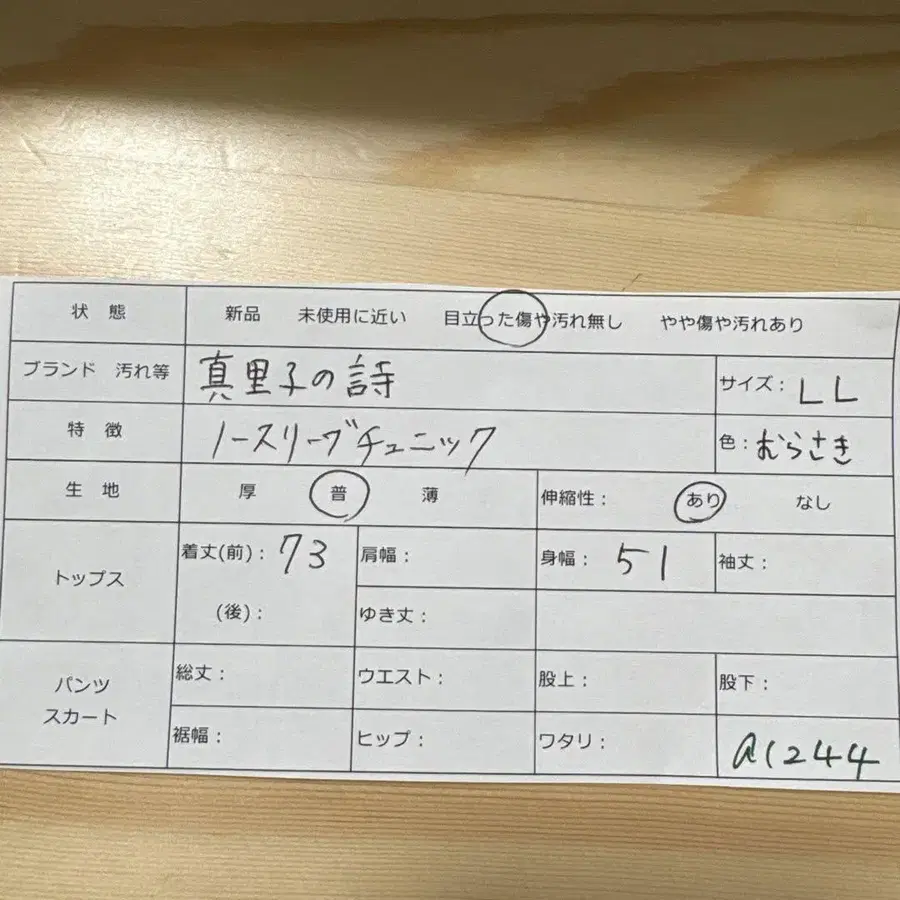 状 態 新品 未使用に近い 目立った傷や汚れ無し やや傷や汚れあり
ブランド 汚れ等 真里子の詩 サイズ： LL
特 徴 ノースリーブチュニック 色： むらさき
生 地 厚 普 薄 伸縮性： あり なし
トップス 着丈(前)： 73 肩幅： 身幅： 51 袖丈：
(後)： ゆき丈：
パンツ スカート 総丈： ウエスト： 股上： 股下：
裾幅： ヒップ： ワタリ： a1244